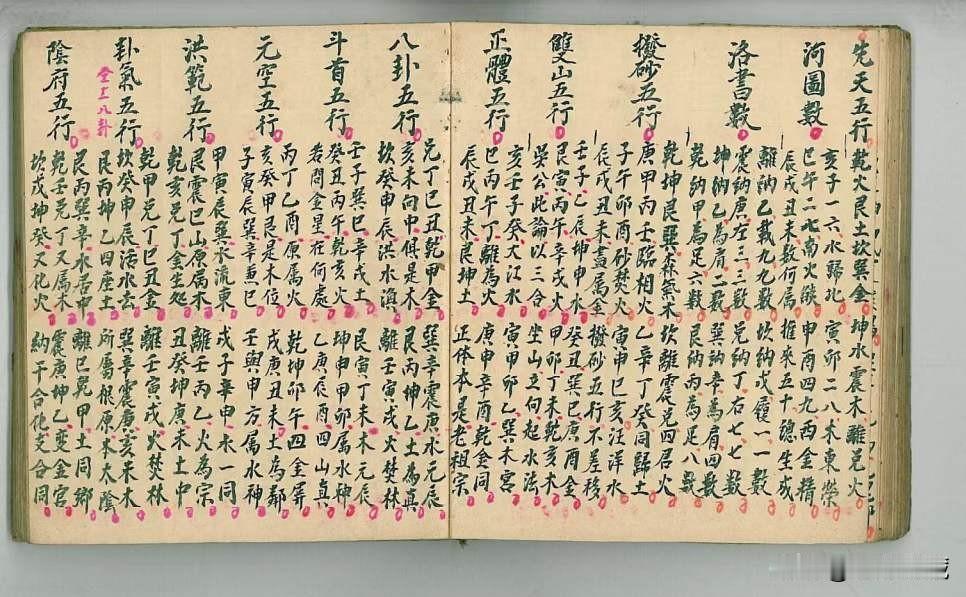 先天五行
乾火艮土坎巽金
坤水震木離兌火
河圖數
亥子一六水歸北
寅卯二八木東榮
巳午二七南火餓
申酉四九西金精
辰戌丑未數何属
推來五十總生成
洛書數
離納乙載九九數
坎納戊履一一數
震納庚左三三數
兌納丁右七七數
坤納乙為肩二數
巽納辛為肩四數
乾納甲為足六數
艮納丙為足八數
撥砂五行
乾坤艮巽森氣木
坎離震兌四君火
庚甲丙壬臨相火
乙辛丁癸同歸土
子午卯酉砂焚火
寅申巳亥汪洋水
辰戌丑未盡属金
撥砂五行不差移
雙山五行
壬子乙辰坤申水
癸丑巽巳庚酉金
艮寅丙午辛戌火
甲卯丁未乾亥木
公此論以三合
坐山立向起水法
正體五行
亥壬子癸大江水
寅甲卯乙巽木宮
巳丙午丁離為火
庚申辛酉乾金同
辰戌丑未艮坤土
正体本是老祖宗
八卦五行
兌丁巳丑乾甲金
巽辛震庚水元辰
亥未向中俱是木
艮丙坤乙土為真
坎癸申辰洪水滇
離壬寅戌火焚林
斗首五行
壬子巽巳辛戌土
艮寅丁未木元辰
癸丑丙午乾亥火
坤申甲卯属水神
若問金星在何處
乙庚辰酉四山真
元空五行
丙丁乙酉原属火
乾坤卯午四金屏
亥癸甲艮是木位
戌庚丑未土為鄰
子寅辰巽辛兼巳
壬與申方属水神
洪範五行
甲寅辰巽水流東
戌子辛申水一同
艮震巳山原属木
離壬丙乙火為宗
乾亥兌丁金生処
丑癸坤庚未土中
卦氣五行
全上八卦
乾甲兌丁巳丑金
離壬寅戌火焚林
坎癸申辰活水去
巽辛震庚亥未木
艮丙坤乙四座土
所属根原本太陰
陰府五行
艮丙巽辛水居中
離巳乾甲土同鄉
乾壬兌丁又属木
震庚坤乙變金宮
坎戌坤癸又化火
納干合化支合同